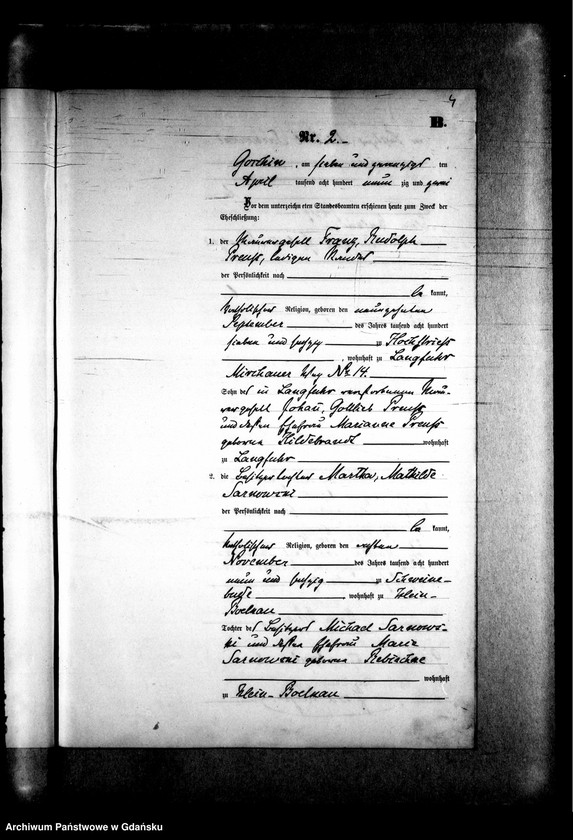 4
B.
Nr. 2.
Gorchin, am sieben und zwanzigst ten
April tausend acht hundert neun zig und zwei
Vor dem unterzeichneten Standesbeamten erschienen heute zum Zweck der
Eheschließung:
1. der Maurergesell Franz, Rudolph
Preuß, ledigen Standes
der Persönlichkeit nach
be kannt,
katholischer Religion, geboren den neunzehnten
September des Jahres tausend acht hundert
sieben und sechzig zu Hochstrieß
, wohnhaft zu Langfuhr
Mirchauer Weg No 14.
Sohn des in Langfuhr verstorbenen Mau-
rergesell Johan, Gottlieb Preuß
und dessen Ehefrau Marianne Preuß
geborene Hildebrandt wohnhaft
zu Langfuhr
2. die Besitzertochter Martha, Mathilde
Sarnowski
der Persönlichkeit nach
be kannt,
katholischer Religion, geboren den ersten
November des Jahres tausend acht hundert
neun und sechzig zu Schweine-
budse, wohnhaft zu Klein-
Boelkau
Tochter des Besitzers Michael Sarnows-
ki und dessen Ehefrau Marie
Sarnowski geborene Rebischke
wohnhaft
zu Klein-Boelkau
Archiwum Państwowe w Gdańsku